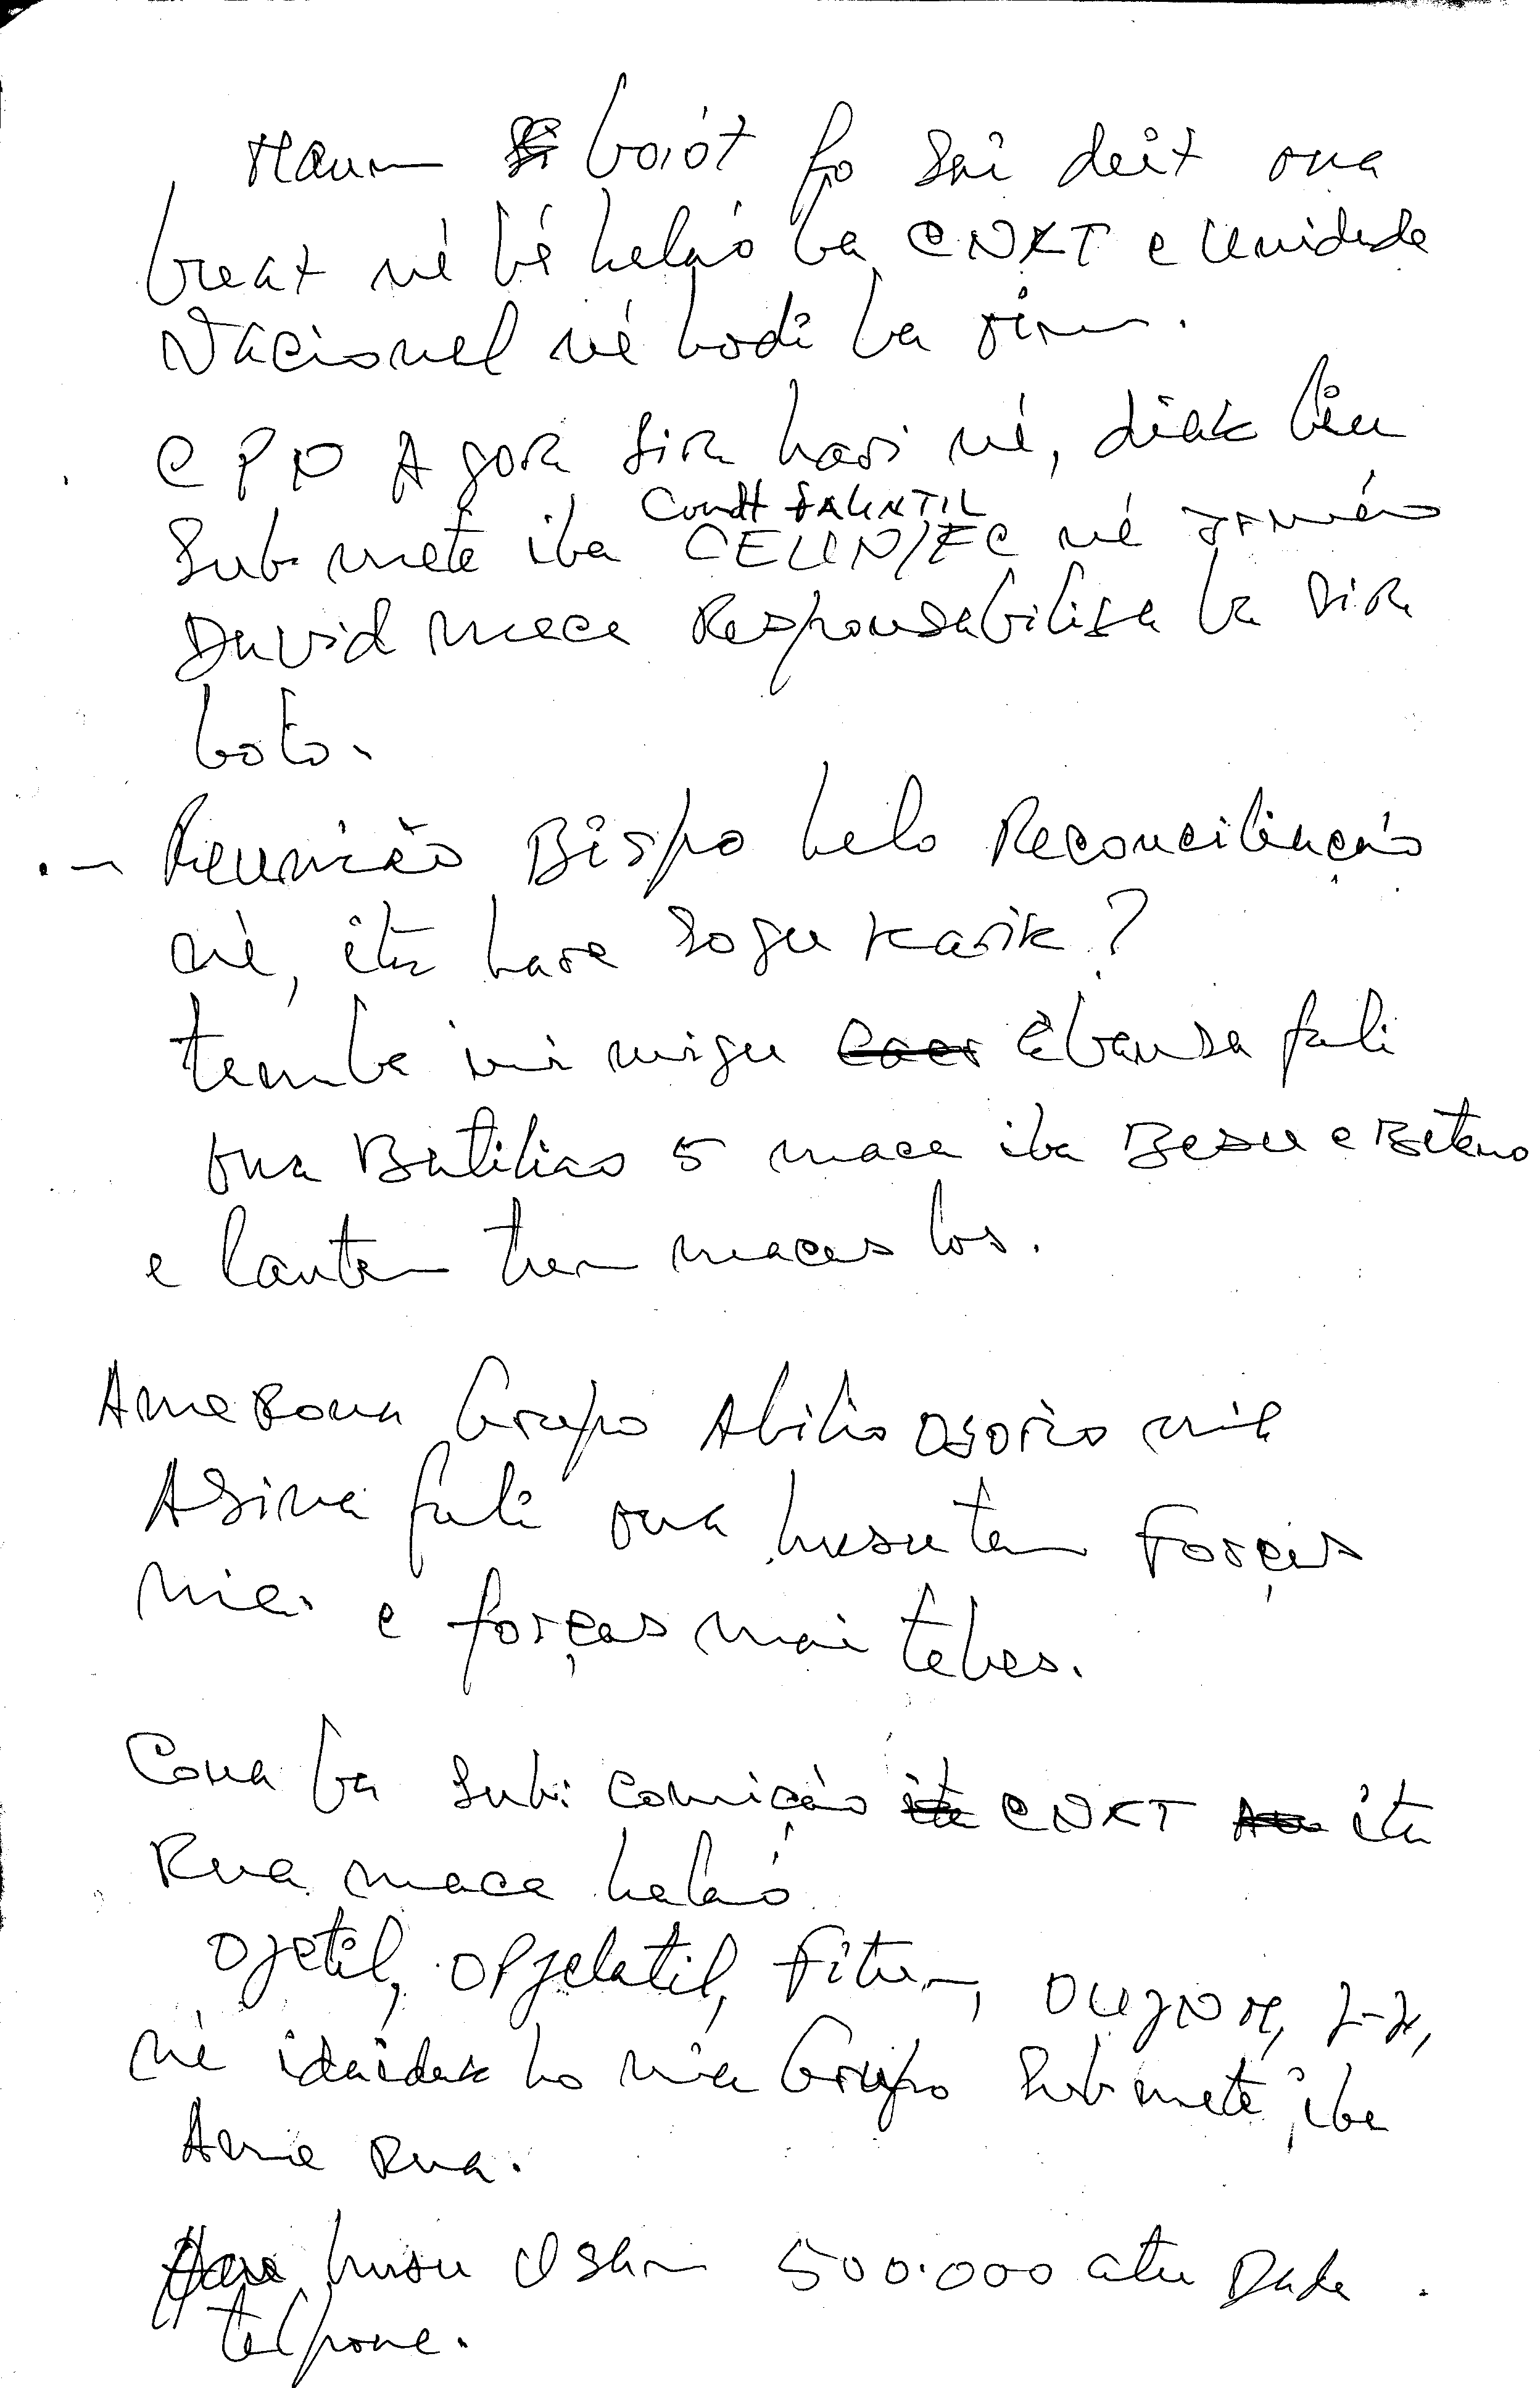 Maun boiót fo sai deit ona
breat né bé helaó ba CNRT e Unidade
Nacional né hodi ba oin.
CPN Agora sira hari né, diak liu
Submete iba CEUN/FC né
Comdt FALINTIL
David maca Responsabiliza ba sira
boto.
.- Reunião Bispo halo Reconciliação
né, ita hare sosu karik?
temba inimigu abansa fali
ona Batiliao 5 maca iba Besu e Betano
e lantem tren macas los.
Ame Rona Grupo Abilio Osorio nia
Asina fali ona husu tan Forças
e forças mai tebes.
Cona ba Sub: Comição CNRT ita
Rua maca halaó
Ojetil, Opjelatil, Fitun, 7-7,
né idaidak ho nia Grupo Submete iba
Ame Rua.
husu Osan 500.000 atu
telpone.